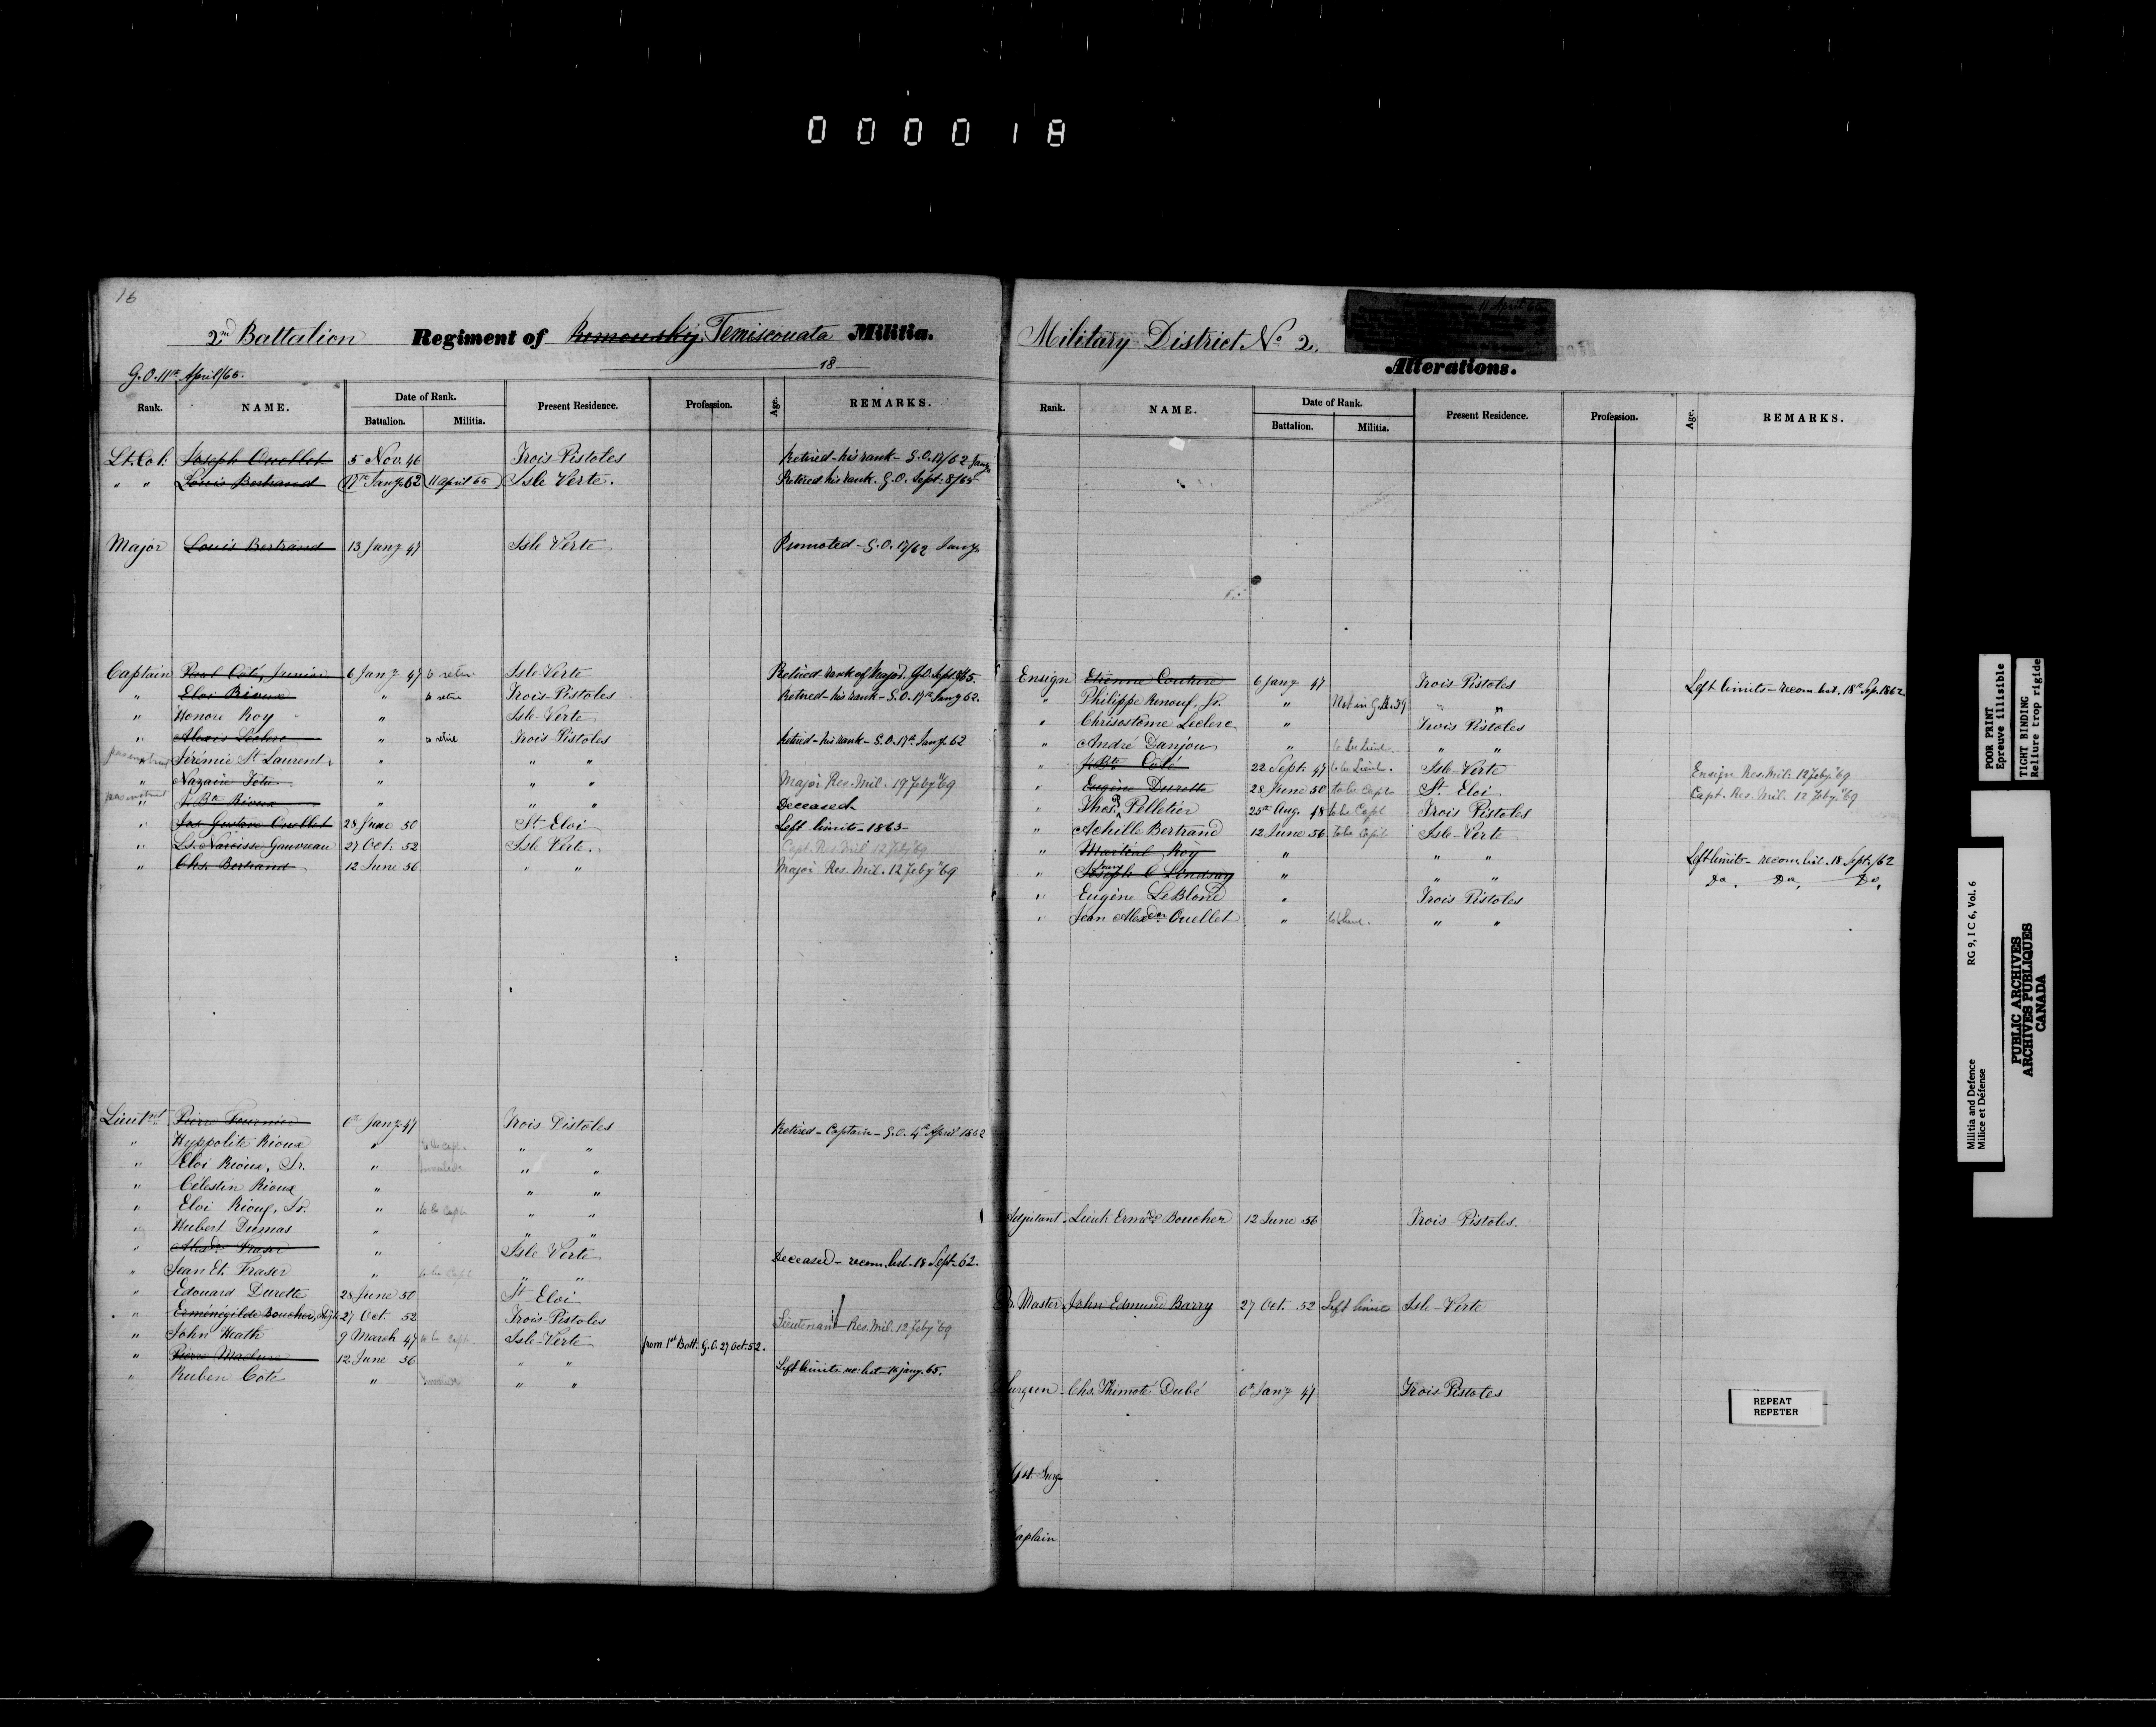 000018
16
2nd Battalion Regiment of Rimouski Temiscouata Militia.
G.O. 11th April/65.
18
Rank. NAME. Date of Rank. Present Residence. Profession. Age. REMARKS.
Battalion. Militia.
Lt. Col. Joseph Ouellet 5 Nov. 46 Trois Pistoles Retired - his rank - G.O. 17/62 Jany
" " Louis Bertrand 17th Jany 62 11 april 65 Isle Verte. Retired his rank. G.O. Sept. 8/65
Major Louis Bertrand 13 Jany 47 Isle Verte Promoted - G.O. 17/62 Jany.
Captain Paul Coté, Junior 6 Jany 47 to retire Isle Verte Retired rank of Major. G.O. Sept 8/65.
" Eloi Rioux to retire Trois Pistoles Retired - his rank - G.O. 17th Jany 62.
" Honore Roy " Isle-Verte
" Alexis Leclerc " to retire Trois Pistoles Retired - his rank - G.O. 17th Jany. 62
Jérémie St Laurent " " "
" Nazaire Tetu " " " Major Res. Mil. 19 Feby "69
" J. Bte Rioux " " " Deceased
" Jos Gustave Ouellet 28 June 50 St Eloi Left limits - 1863 -
" Ls. Narcisse Gauvreau 27 Oct. 52 Isle Verte. Capt. Res. Mil. 12 Feby "69
" Chs. Bertrand 12 June 56 " " Major Res. Mil. 12 Feby "69
Lieutnt Pierre Fournier 6th Jany 47 Trois Pistoles Retired - Captain - G.O. 4th April 1862
" Hyppolite Rioux " to be Capt. " "
" Eloi Rioux, Sr. " " "
" Célestin Rioux " " "
" Eloi Rioux, Jr. " to be Capt " "
" Hubert Dumas " " "
" Alexdr Fraser " Isle Verte Deceased - recom. list - 18 Sept. 62.
" Jean Et. Fraser " to be Capt " "
" Edouard Durette 28 June 50 St Eloi
" Erménégilde Boucher, 27 Oct. 52 Trois-Pistoles Lieutenant Res. Mil. 12 Feby "69
" John Heath 9 March 47 to be Capt. Isle-Verte from 1st Batt. G.O. 27 Oct. 52.
" Pierre 12 June 56 " " Left limits 65.
" Ruben Coté " " "
Military District No 2.
11 April 65
Alterations.
Rank. NAME. Date of Rank. Present Residence. Profession. Age. REMARKS.
Battalion. Militia.
Ensign Etienne Couture 6 Jany 47 Trois Pistoles Left limits - recom. list. 18th Sep. 1862
" Philippe Renouf, Jr. " " "
" Chrisostôme Leclerc " Trois Pistoles
" André Danjou " to be Lieut. " "
" J. Bte Coté 22 Sept. 47 to be Lieut. Isle-Verte Ensign Res. Mil. 12 Feby. "69
" Eugène Durette 28 June 50 to be Capt St. Eloi Capt. Res. Mil. 12 Feby. "69
" Thos. P. Pelletier 25th Aug. 48 to be Capt Trois Pistoles
" Achille Bertrand 12 June 56 to be Capt Isle-Verte
" Martial Roy " " " Left limits - recom. list. 18 Sept./62
" Joseph C Lindsay " " " Do. Do. Do.
" Eugène LeBlond " Trois Pistoles
" Jean Alexder Ouellet " to be Lieut. " "
Adjutant Lieut. Ermdde Boucher 12 June 56 Trois Pistoles.
Qr. Master John Edmund Barry 27 Oct. 52 Left limits Isle-Verte
Surgeon Chs. Thimoté Dubé 6th Jany 47 Trois Pistoles
Asst. Surg.
Chaplain
POOR PRINT
Epreuve illisible
TIGHT BINDING
Reliure trop rigide
Militia and Defence RG 9, I C 6, Vol. 6
Milice et Défense
PUBLIC ARCHIVES
ARCHIVES PUBLIQUES
CANADA
REPEAT
REPETER